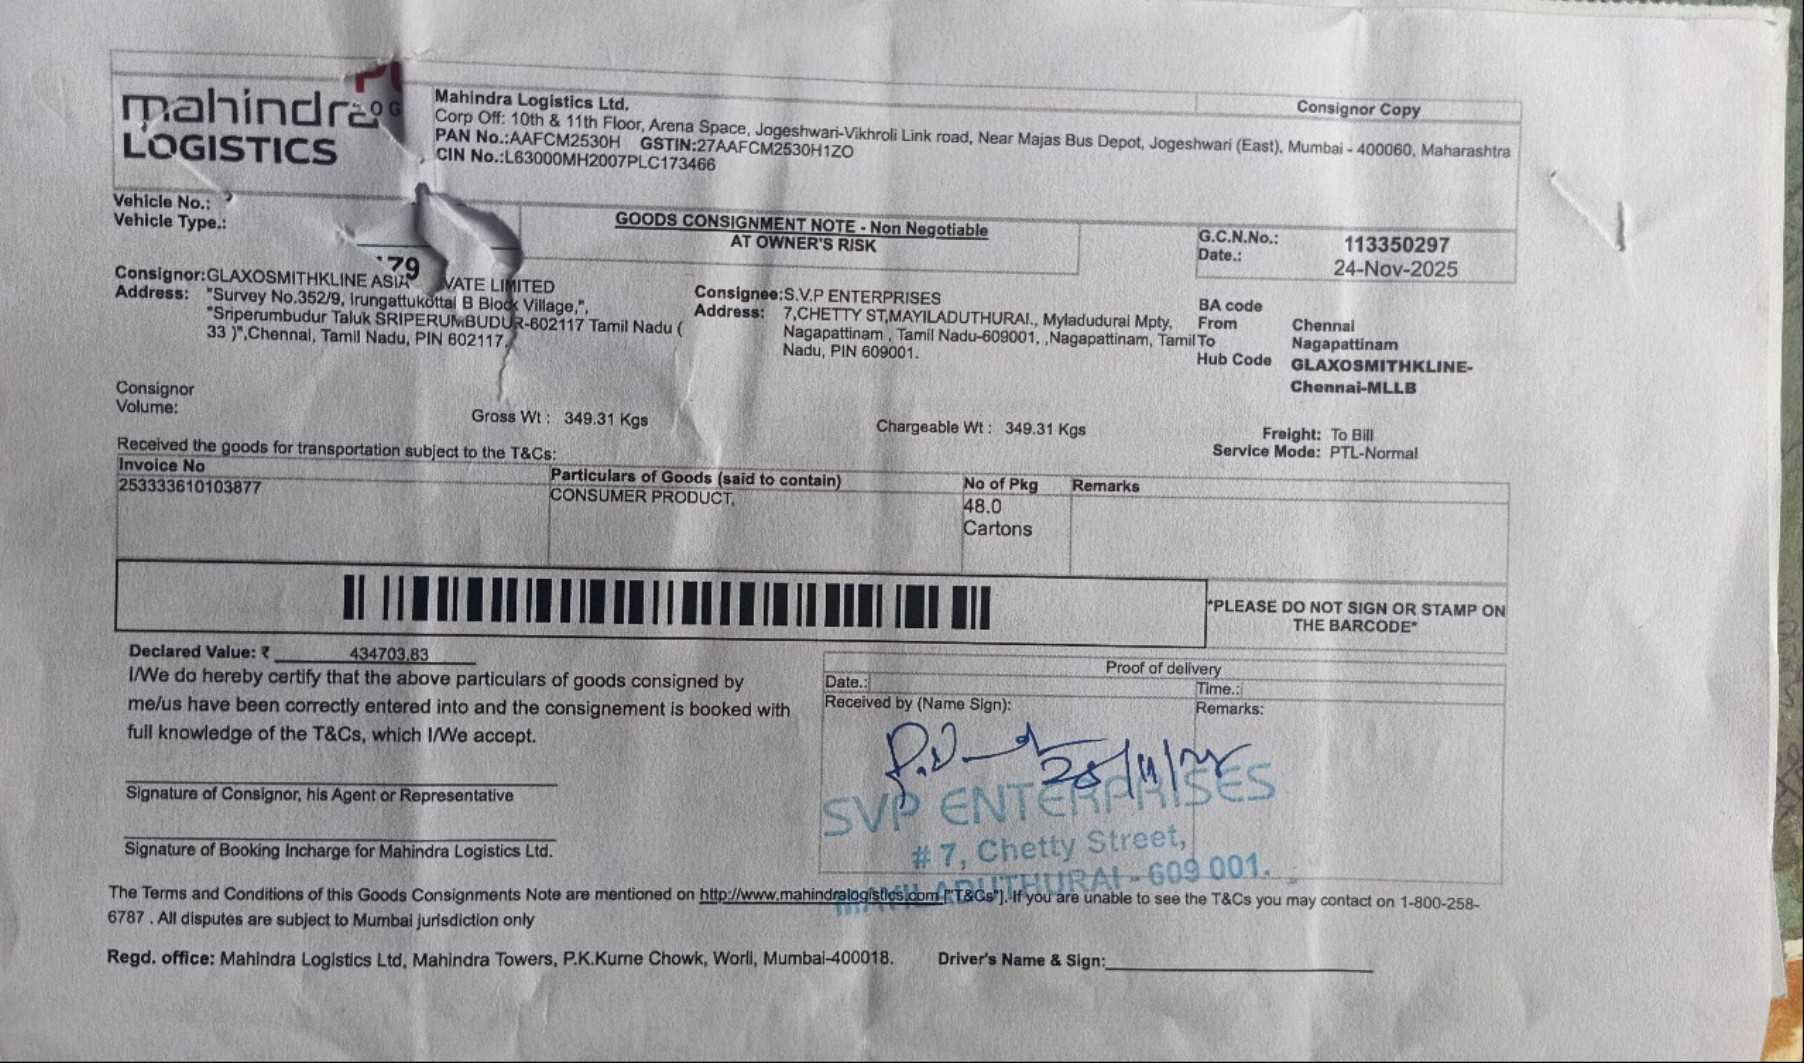 mahindra
LOGISTICS
Mahindra Logistics Ltd.
Consignor Copy
Corp Off: 10th & 11th Floor, Arena Space, Jogeshwari-Vikhroli Link road, Near Majas Bus Depot, Jogeshwari (East), Mumbai - 400060, Maharashtra
PAN No.:AAFCM2530H GSTIN:27AAFCM2530H1ZO
CIN No.:L63000MH2007PLC173466
Vehicle No.:
Vehicle Type.:
GOODS CONSIGNMENT NOTE - Non Negotiable
AT OWNER'S RISK
G.C.N.No.: 113350297
Date.: 24-Nov-2025
79
Consignor:GLAXOSMITHKLINE ASIA VATE LIMITED
Address: "Survey No.352/9, Irungattukottai B Block Village,",
"Sriperumbudur Taluk SRIPERUMBUDUR-602117 Tamil Nadu (
33 )",Chennai, Tamil Nadu, PIN 602117.
Consignee:S.V.P ENTERPRISES
Address: 7,CHETTY ST,MAYILADUTHURAI., Myladudurai Mpty,
Nagapattinam , Tamil Nadu-609001, ,Nagapattinam, Tamil
Nadu, PIN 609001.
BA code
From Chennai
To Nagapattinam
Hub Code GLAXOSMITHKLINE-
Chennai-MLLB
Consignor
Volume:
Gross Wt : 349.31 Kgs
Chargeable Wt : 349.31 Kgs
Freight: To Bill
Service Mode: PTL-Normal
Received the goods for transportation subject to the T&Cs:
Invoice No Particulars of Goods (said to contain) No of Pkg Remarks
253333610103877 CONSUMER PRODUCT, 48.0
Cartons
*PLEASE DO NOT SIGN OR STAMP ON
THE BARCODE*
Declared Value: ₹ 434703.83
I/We do hereby certify that the above particulars of goods consigned by
me/us have been correctly entered into and the consignement is booked with
full knowledge of the T&Cs, which I/We accept.
Proof of delivery
Date.: Time.:
Received by (Name Sign): Remarks:
SVP ENTERPRISES
# 7, Chetty Street,
MAYILADUTHURAI - 609 001.
Signature of Consignor, his Agent or Representative
Signature of Booking Incharge for Mahindra Logistics Ltd.
The Terms and Conditions of this Goods Consignments Note are mentioned on http://www.mahindralogistics.com ["T&Cs"]. If you are unable to see the T&Cs you may contact on 1-800-258-
6787 . All disputes are subject to Mumbai jurisdiction only
Regd. office: Mahindra Logistics Ltd, Mahindra Towers, P.K.Kurne Chowk, Worli, Mumbai-400018. Driver's Name & Sign: